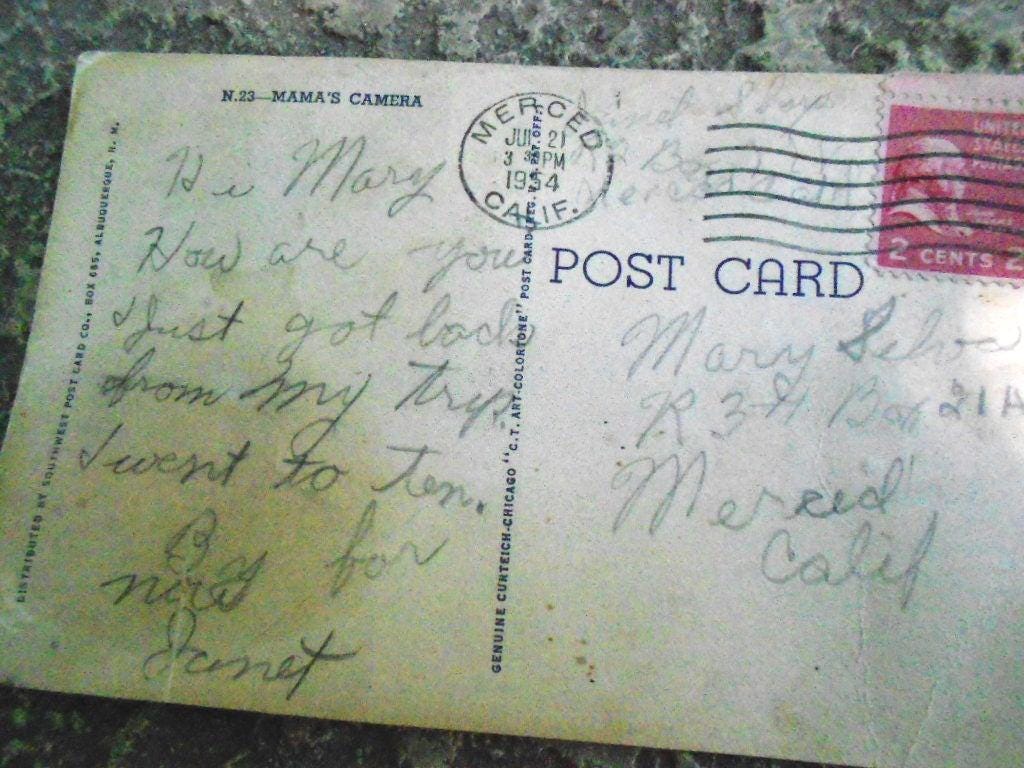 N.23—MAMA'S CAMERA
Hi Mary
How are you
I Just got back
from my trip.
I went to Ten.
By for
now
Janet
DISTRIBUTED BY SOUTHWEST POST CARD CO., BOX 685, ALBUQUERQUE, N. M.
GENUINE CURTEICH-CHICAGO "C.T. ART-COLORTONE" POST CARD (REG. U.S. PAT. OFF.)
MERCED
JUL 21
3 PM
1954
CALIF.
R2 Box
Merced
UNITED
STATES
2 CENTS 2
POST CARD
Mary Silva
R 3-H Box 21A
Merced
Calif